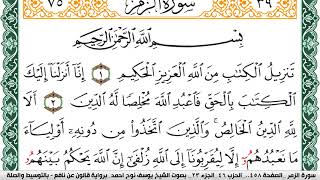 ٧٥ سُورَةُ الزُّمَرِ ٣٩
بِسْمِ اللَّهِ الرَّحْمَٰنِ الرَّحِيمِ
تَنزِيلُ الْكِتَٰبِ مِنَ اللَّهِ الْعَزِيزِ الْحَكِيمِ ١ إِنَّا أَنزَلْنَا إِلَيْكَ
الْكِتَٰبَ بِالْحَقِّ فَاعْبُدِ اللَّهَ مُخْلِصًا لَّهُ الدِّينَ ٢
لِلَّهِ الدِّينُ الْخَالِصُ وَالَّذِينَ اتَّخَذُوا مِن دُونِهِ أَوْلِيَاءَ
مَا نَعْبُدُهُمْ إِلَّا لِيُقَرِّبُونَا إِلَى اللَّهِ زُلْفَىٰ إِنَّ اللَّهَ يَحْكُمُ بَيْنَهُمْ
سورة الزمر - الصفحة ٤٥٨ - الحزب ٤٦ - الجزء ٢٣ - بصوت الشيخ يوسف نوح احمد - برواية قالون عن نافع - بالتوسيط والصلة